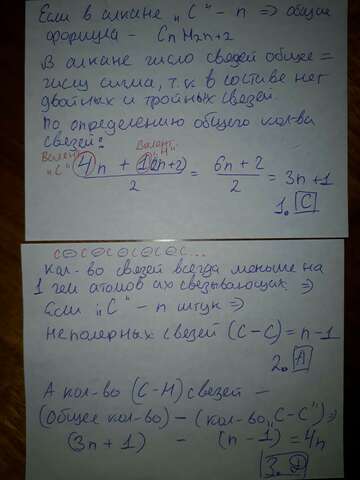 Если в алкане „С" - n => общая
формула - CnH2n+2
В алкане число связей общее =
числу сигма, т.к в составе нет
двойных и тройных связей.
По определению общего кол-ва
связей:
Валент. „С" Валент. „H"
(4n + 1(2n+2))/2 = (6n + 2)/2 = 3n+1
1. C
C-C-C-C-C-C...
Кол-во связей всегда меньше на
1 чем атомов их связывающих =>
Если „С" - n штук =>
неполярных связей (C-C) = n-1
2. A
А кол-во (C-H) связей -
(Общее кол-во) - (кол-во „C-C") =>
(3n+1) - (n-1) = 4n
3.